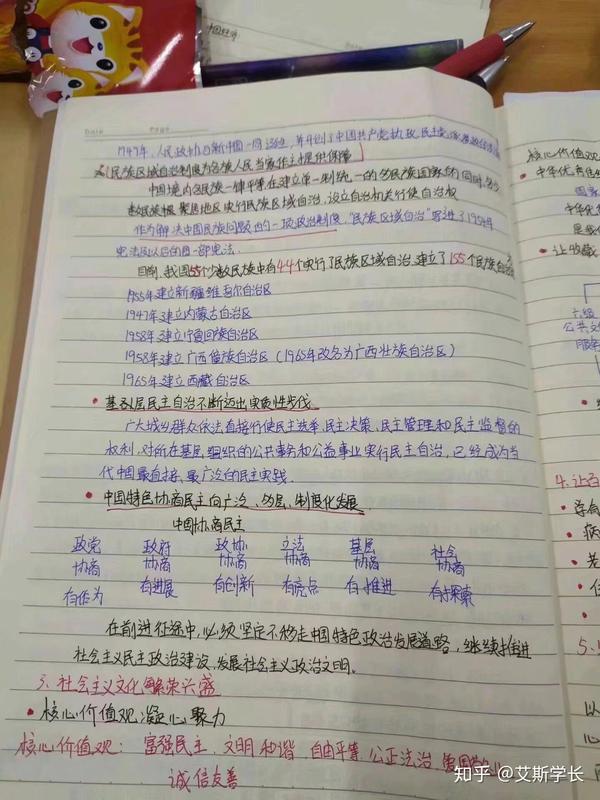 中国经济:
Date Page
1949年,人民政协与新中国一同诞生,并开创了中国共产党执政,民主党派
民族区域自治制度为各族人民当家作主提供保障
中国境内各民族一律平等在建立单一制统一的多民族国家的同时,各少
数民族根 聚居地区实行民族区域自治,设立自治机关行使自治权
作为解决中国民族问题的一项政治制度,"民族区域自治"写进了1954年
宪法及以后的每一部宪法.
目前,我国55个少数民族中有44个实行了民族区域自治.建立了155个民族自治
1955年建立新疆维吾尔自治区
1947年建立内蒙古自治区
1958年建立宁夏回族自治区
1958年建立广西僮族自治区(1965年改名为广西壮族自治区)
1965年建立西藏自治区
• 基层民主自治不断迈出实质性步伐
广大城乡群众依法直接行使民主选举,民主决策、民主管理和民主监督的
权利,对所在基层组织的公共事务和公益事业实行民主自治,已经成为当
代中国最直接、最广泛的民主实践.
• 中国特色协商民主向广泛、多层、制度化发展
中国协商民主
政党 政府 政协 立法 基层 社会
协商 协商 协商 协商 协商 协商
有作为 有进展 有创新 有亮点 有推进 有探索
在前进征途中,必须坚定不移走中国特色政治发展道路,继续推进
社会主义民主政治建设,发展社会主义政治文明.
3、社会主义文化繁荣兴盛
• 核心价值观凝心聚力
核心价值观: 富强民主、文明和谐、自由平等、公正法治、爱国敬业
诚信友善
核心价值观
• 中华优秀传
国家
中华优
是我
• 让收藏
公共文
服务
4. 让百
• 学有
• 病
• 老
• 住
5.
以
心
知乎 @艾斯学长